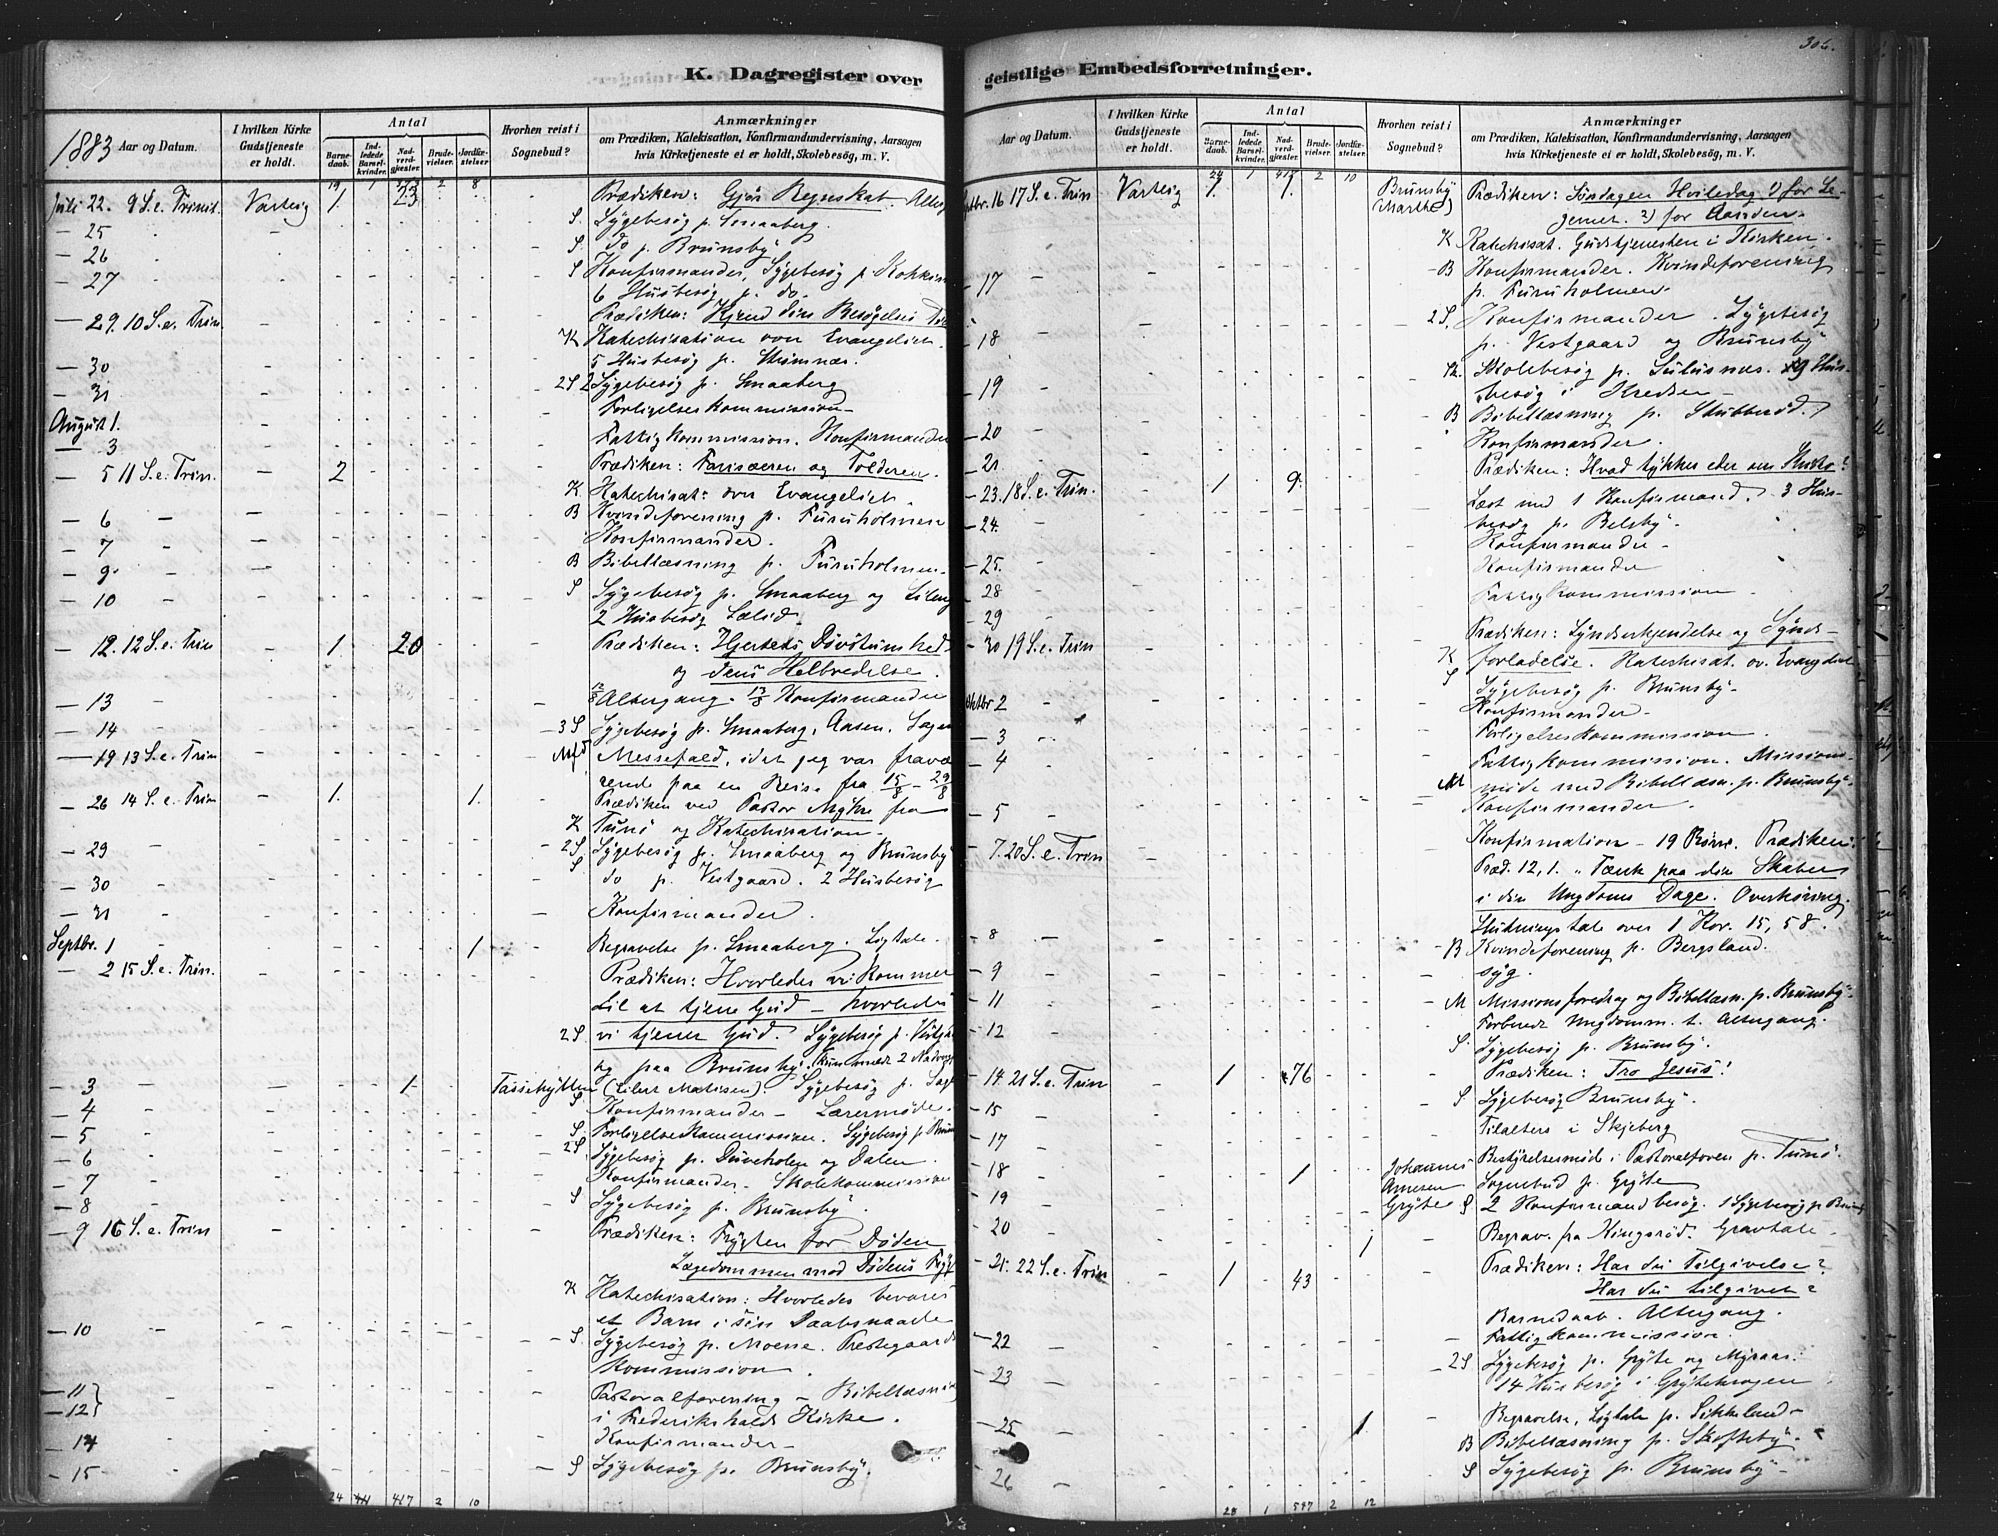 306.
K. Dagregister over geistlige Embedsforretninger.
1883 Aar og Datum.
I hvilken Kirke Gudstjeneste er holdt.
Antal
Barnedaab.
Indledede Barselkvinder.
Nadverdgjester.
Brudevielser.
Jordfæstelser.
Hvorhen reist i Sognebud?
Anmærkninger
om Prædiken, Katekisation, Konfirmandundervisning, Aarsagen
hvis Kirketjeneste ei er holdt, Skolebesøg, m. V.
Juli 22. 9 S. e. Trinit. Varteig 1. 23 Prædiken: Gjør Regnskab.
— 25 S. Sygebesøg p. Smaaberg.
— 26 S. do p. Brunsby
— 27 S Konfirmander, Sygebesøg p.
6 Husbesøg p. do.
— 29. 10 S. e. Trin. Prædiken: Kjend din Besøgelses
K Katechisation over Evangeliet.
— 30 5 Husbesøg p.
— 31 2 S Sygebesøg p. Smaaberg
August 1. Forligelseskommission
— 3 Fattigkommission. Konfirmander
— 5 11 S. e. Trin. 2 Prædiken: Farisæeren og Tolderen.
K Katechisat: over Evangeliet.
— 6 B Kvindeforening p. Furuholmen
— 7 Konfirmander.
— 9 B Bibellæsning p. Furuholmen
— 10 S Sygebesøg p. Smaaberg og
2 Husbesøg
— 12. 12 S. e. Trin 1. 20 Prædiken: Hjertets Døvstumhed
og dens Helbredelse.
— 13 12/8 Altergang. 13/8 Konfirmander
— 14 3 S Sygebesøg p. Smaaberg, Aasen,
— 19 13 S. e. Trin Messefald, idet jeg var fravæ
rende paa en Reise fra 15/8 - 29/8
— 26 14 S. e. Trin 1. 1. Prædiken ved Pastor Myhre fra
K Tunø og Katechisation
— 29 2 S Sygebesøg p. Smaaberg og Brunsby
— 30 S do p. Vestgaard. 2 Husbesøg
— 31 Konfirmander.
Septbr. 1 1 Begravelse p. Smaaberg. Ligtale.
— 2 15 S. e. Trin. Prædiken: Hvorledes vi kommer
til at tjene Gud — hvorledes
2 S vi tjener Gud. Sygebesøg p.
og paa Brunsby.
— 3 1 Sygebesøg p.
— 4 S Konfirmander — Lærermøde.
— 5 S Forligelseskommission. Sygebesøg p.
— 6 2 S Sygebesøg p. Duveholen og Dalen
— 7 Konfirmander — Skolekommission
— 8 S Sygebesøg p. Brunsby.
— 9 16 S. e. Trin Prædiken: Frygten for Døden
Lægedommen mod Dødens
K Katechisation: Hvorledes bevares
et Barn i sin Daabsnaade
— 10 S Sygebesøg p. Præstegaards
kommission
— 11 } Pastoralforening — Bibellæsning
— 12 } i Frederikshalds Kirke.
— 14 Konfirmander —
— 15 S Sygebesøg p. Brunsby.
24 417 2 10
Aar og Datum.
I hvilken Kirke Gudstjeneste er holdt.
Antal
Barnedaab.
Indledede Barselkvinder.
Nadverdgjester.
Brudevielser.
Jordfæstelser.
Hvorhen reist i Sognebud?
Anmærkninger
om Prædiken, Katekisation, Konfirmandundervisning, Aarsagen
hvis Kirketjeneste et er holdt, Skolebesøg, m. V.
24 1 417 2 10
16 17 S. e. Trin Varteig 1. 1. Brunsby (Marthe) Prædiken: Søndagen Hviledag 1) for Le-
gemet. 2) for Aanden.
K Katechisat. Gudstjenesten i Kirken.
— 17 B Konfirmander. Kvindeforening
p. Furuholmen
— 18 2 S. Konfirmander. Sygebesøg
p. Vestgaard og Brunsby
— 19 Skolebesøg p. 9 Hus-
besøg i Kredsen
— 20 B Bibellæsning p.
— 21 Konfirmander.
— 23. 18 S. e. Trin. 1 9 Prædiken: Hvad tykkes eder om Kristo?
— 24. Læst med 1 Konfirmand. 3 Hus-
besøg p.
— 25. Konfirmander
— 28 Konfirmander
— 29 Fattigkommission
— 30 19 S. e. Trin Prædiken: Syndserkjendelse og Synds-
K forladelse. Katechisat. ov. Evangeliet
S Sygebesøg p. Brunsby
Oktbr 2 Konfirmander
— 3 Forligelseskommission.
— 4 Fattigkommission. Missions-
M møde med Bibellæsn. p. Brunsby.
— 5 Konfirmander.
— 7. 20 S. e. Trin Konfirmation — 19 Børn. Prædiken:
Præd. 12, 1. „Tænk paa din Skaber
i din Ungdoms Dage. Overhøring.
Slutningstale over 1 Kor. 15, 58.
— 8 B Kvindeforening p. Bergsland.
— 9 syg.
— 11 M Missionsforedrag og Bibellæsn. p. Brunsby.
— 12 Forbered. Ungdomm. t. Altergang.
S Sygebesøg p. Brunsby.
— 14. 21 S. e. Trin 1 76 Prædiken: Tro Jesus!
— 15 S Sygebesøg Brunsby.
— 17 Tilalters i Skjeberg
— 18 Bestyrelsesmøde i Pastoralforen p. Tunø
— 19 1 Johannes Arnesen Grøte Sognebud p. Grøte
S 2 Konfirmandbesøg. 1 Sygebesøg p.
— 20 1 Begrav. fra Kingsrød. Gravtale
— 21. 22 S. e. Trin 1 43 Prædiken: Har du Tilgivelse?
Har du tilgivet?
Barnedaab. Altergang.
— 22 Fattigkommission.
— 23 2 S Sygebesøg p. Grøte og
14 Husbesøg i Grøtekrogen
— 25 1 Begravelse, Ligtale p. Sikkeland
B Bibellæsning p. Skofteby.
— 26 S Sygebesøg p. Brunsby
28 1 547 2 12